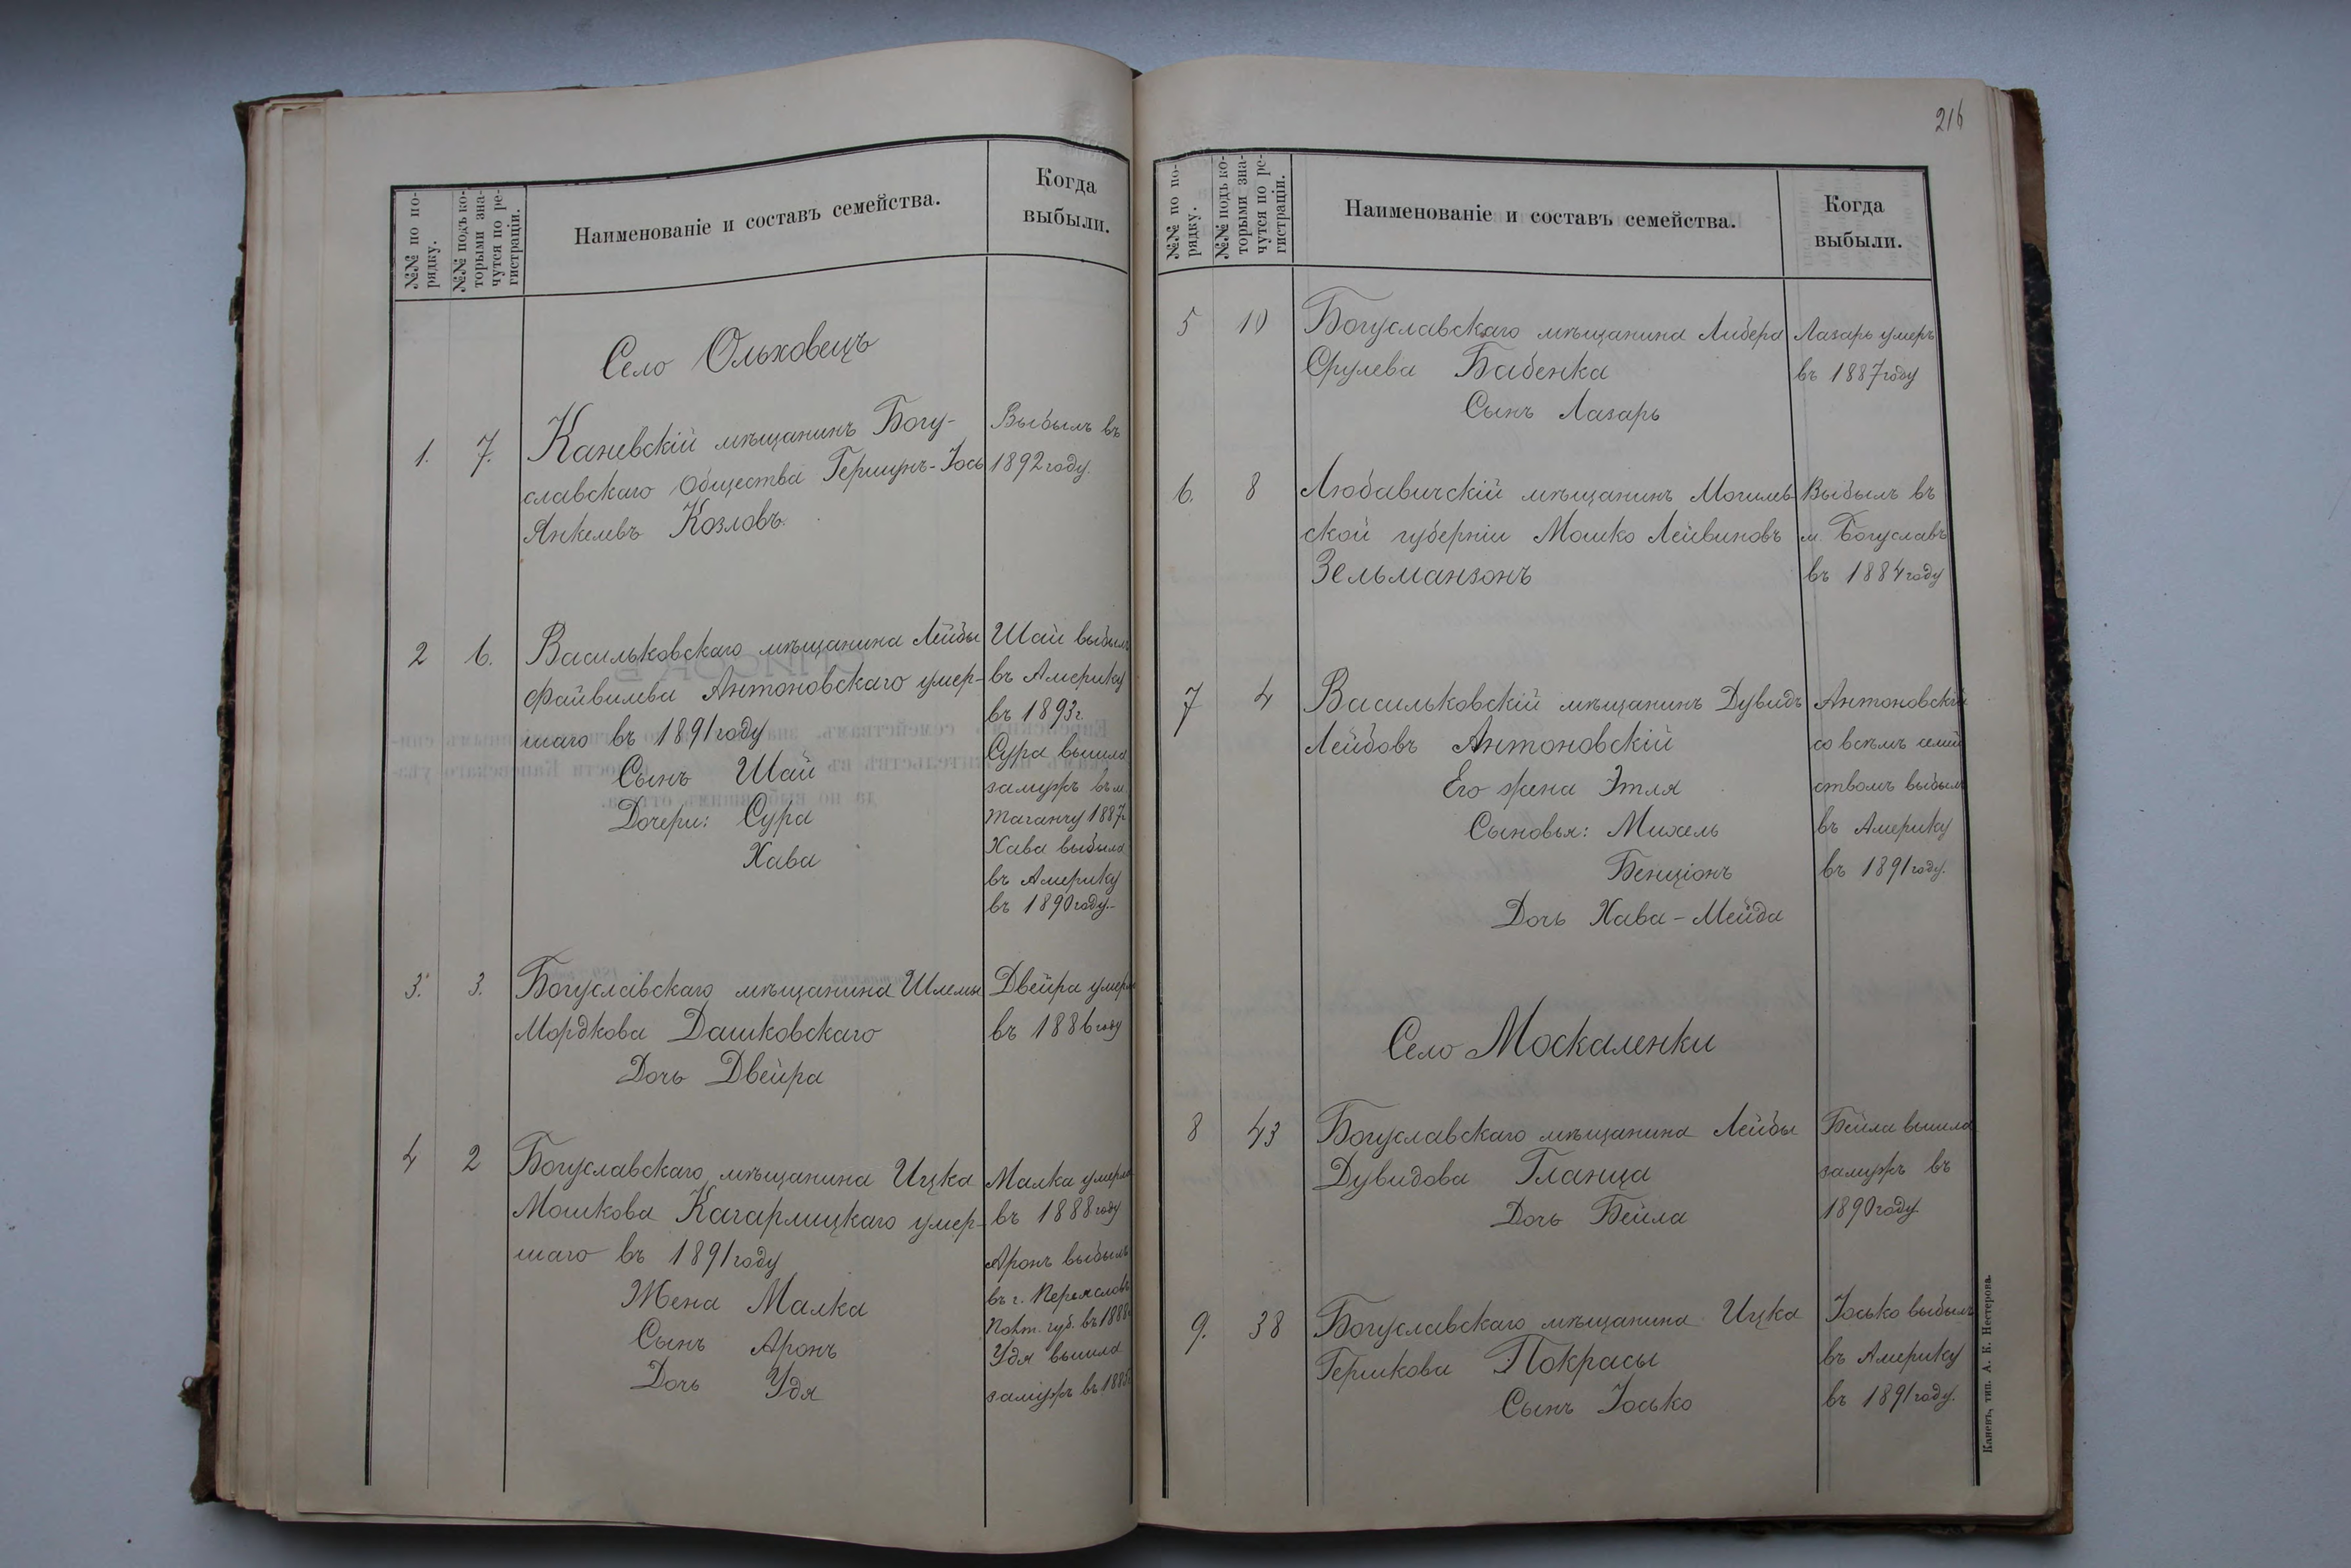 №№ по по-
рядку.
№№ подъ ко-
торыми зна-
чутся по ре-
гистраціи.
Наименованіе и составъ семейства.
Когда
выбыли.
Село Ольховецъ
1. 7. Каневскій мѣщанинъ Богу-
славскаго Общества Гершунъ-Іось
Янкелевъ Козловъ.
Выбылъ въ
1892 году.
2 6. Васильковскаго мѣщанина Лейбы
Файвилева Антоновскаго умер-
шаго въ 1891 году
Сынъ Шай
Дочери: Сура
Хава
Шай выбылъ
въ Америку
въ 1893 г.
Сура вышла
замужъ въ м.
Таганчу 1887 г
Хава выбыла
въ Америку
въ 1890 году.-
3. 3. Богуславскаго мѣщанина Шлемы
Мордкова Дашковскаго
Дочь Двейра
Двейра умерла
въ 1886 году
4 2 Богуславскаго мѣщанина Ицка
Мошкова Кагарлицкаго умер-
шаго въ 1891 году
Жена Малка
Сынъ Аронъ
Дочь Удя
Малка умерла
въ 1888 году
Аронъ выбылъ
въ г. Переясловъ
Полт. губ. въ 1888
Удя вышла
замужъ въ 1885
216
№№ по по-
рядку.
№№ подъ ко-
торыми зна-
чутся по ре-
гистраціи.
Наименованіе и составъ семейства.
Когда
выбыли.
5 10 Богуславскаго мѣщанина Либера
Срулева Бабенка
Сынъ Лазарь
Лазарь умеръ
въ 1887 году
6. 8 Любавичскій мѣщанинъ Могилев-
ской губерніи Мошко Лейвиновъ
Зельманзонъ
Выбылъ въ
м. Богуславъ
въ 1884 году
7 4 Васильковскій мѣщанинъ Дувидъ
Лейбовъ Антоновскій
Его жена Этля
Сыновья: Михель
Бенціонъ
Дочь Хава-Мейда
Антоновскій
со всѣмъ семей
ствомъ выбылъ
въ Америку
въ 1891 году.
Село Москаленки
8 43 Богуславскаго мѣщанина Лейбы
Дувидова Гланца
Дочь Бейла
Бейла вышла
замужъ въ
1890 году.
9. 38 Богуславскаго мѣщанина Ицка
Гершкова Покрасы
Сынъ Іосько
Іосько выбылъ
въ Америку
въ 1891 году.
Каневъ, тип. А. К. Нестерова.